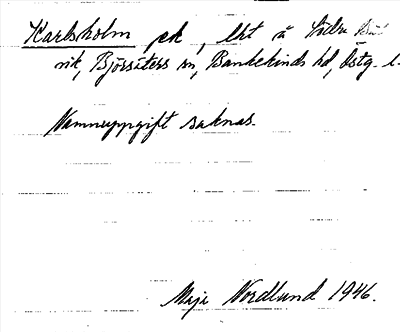 Karlsholm pk, lht å Södra
vik, Björsäters sn, Bankekinds hd, Östg. l.
Namnuppgift saknas.
Maji Nordlund 1946.